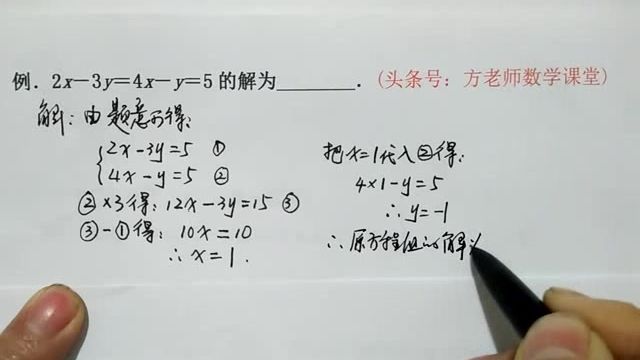 例．2x－3y＝4x－y＝5的解为________．(头条号：方老师数学课堂)
解：由题意可得：
2x-3y=5 ①
4x-y=5 ②
②×3得：12x-3y=15 ③
③-①得：10x=10
∴x=1.
把x=1代入②得：
4×1-y=5
∴y=-1
∴原方程组的解